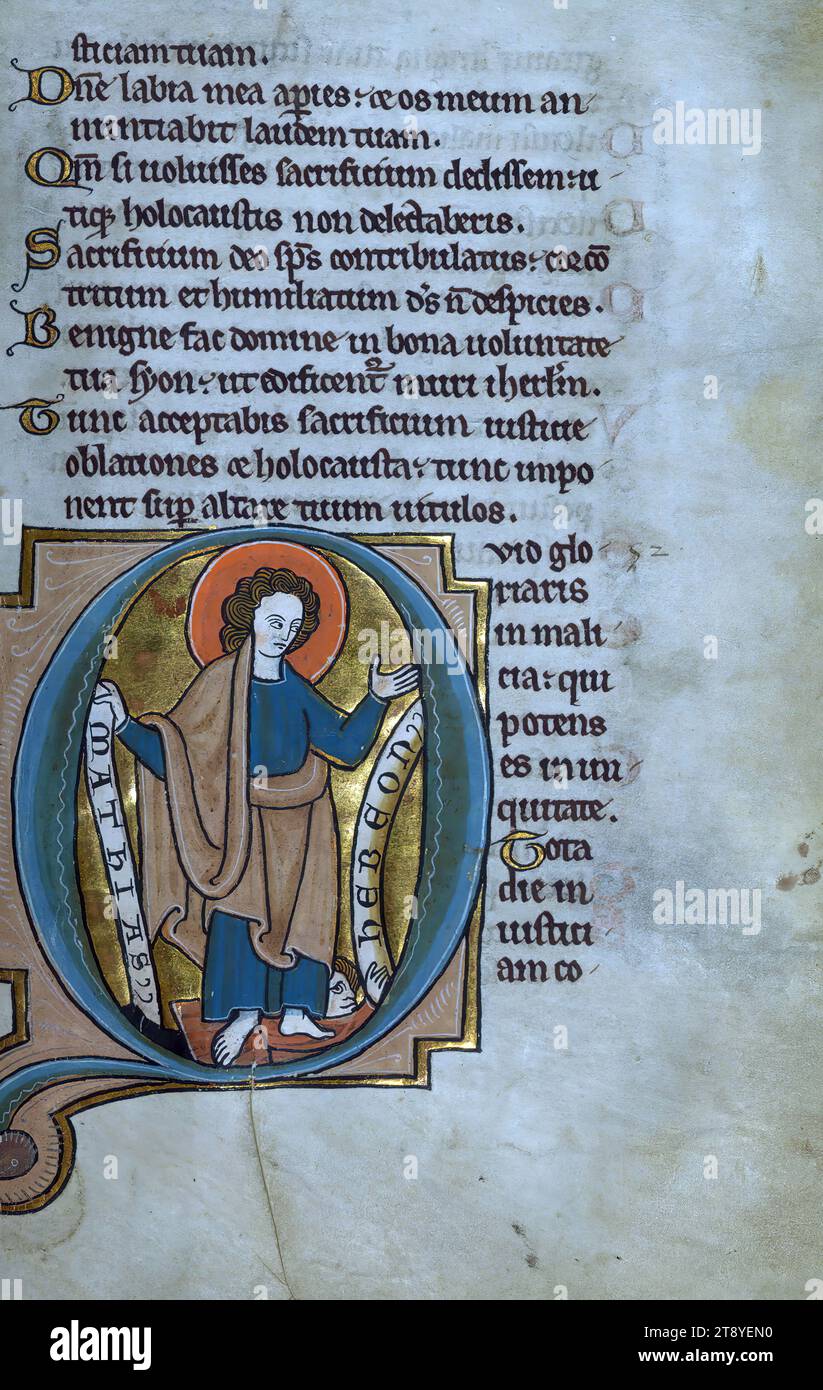 sticiam tuam.
Dne labia mea apries. et os meum an
nuntiabit laudem tuam.
Qm si uoluisses sacrificium dedissem. u
tiq; holocaustis non delectaberis.
Sacrificium deo sps contribulatus. cor co
tritum et humiliatum ds n despicies.
Benigne fac domine in bona uoluntate
tua syon. ut edificent muri iherlm.
Tunc acceptabis sacrificium iusticie
oblationes et holocausta. tunc impo
nent sup altare tuum uitulos.
Quid glo
riaris
in mali
cia. qui
potens
es in ini
quitate.
Tota
die in
iustici
am co
52
MATHIAS
HEBEON
alamy
Image ID: 2T8YEN0
www.alamy.com